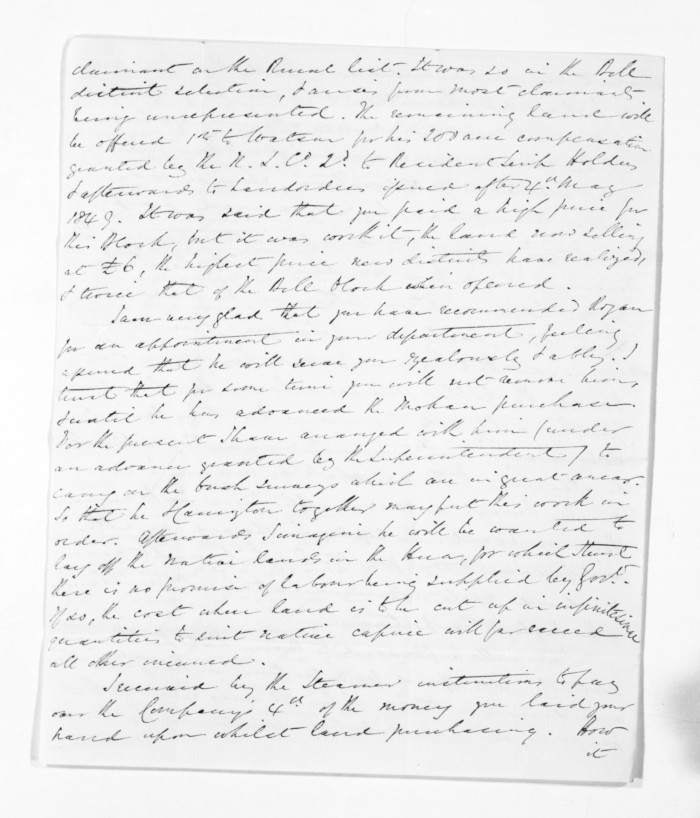 claimant on the Rural list. It was so in the Bell
district selection, & arises from most claimants
being unrepresented. The remaining land will
be offered 1st to Watson for his 200 acre compensation
granted by the N. Z. Co. 2d. to Resident Scrip Holders
& afterwards to Landorders issued after 4th May
1849. It was said that you paid a high price for
this Block, but it was worth it, the land now selling
at £6, the highest price new districts have realized,
& twice that of the Bell block when opened.
I am very glad that you have recommended Rogan
for an appointment in your department, feeling
assured that he will serve you zealously & ably. I
trust that for some time you will not remove him,
& until he has advanced the Mokau purchase.
For the present I have arranged with him (under
an advance granted by the Superintendent) to
carry on the bush surveys which are in great arrear.
So that he & Carrington together may put this work in
order. Afterwards I imagine he will be wanted to
lay off the Native lands in the Hua, for which I trust
there is no promise of labour being supplied by Govt.
If so, the cost when land is to be cut up in infinitesimal
quantities to suit native caprice will far exceed
all other incurred.
I received by the Steamer instructions to pay
over the Company's 4th of the money you laid your
hand upon whilst land purchasing. How
it